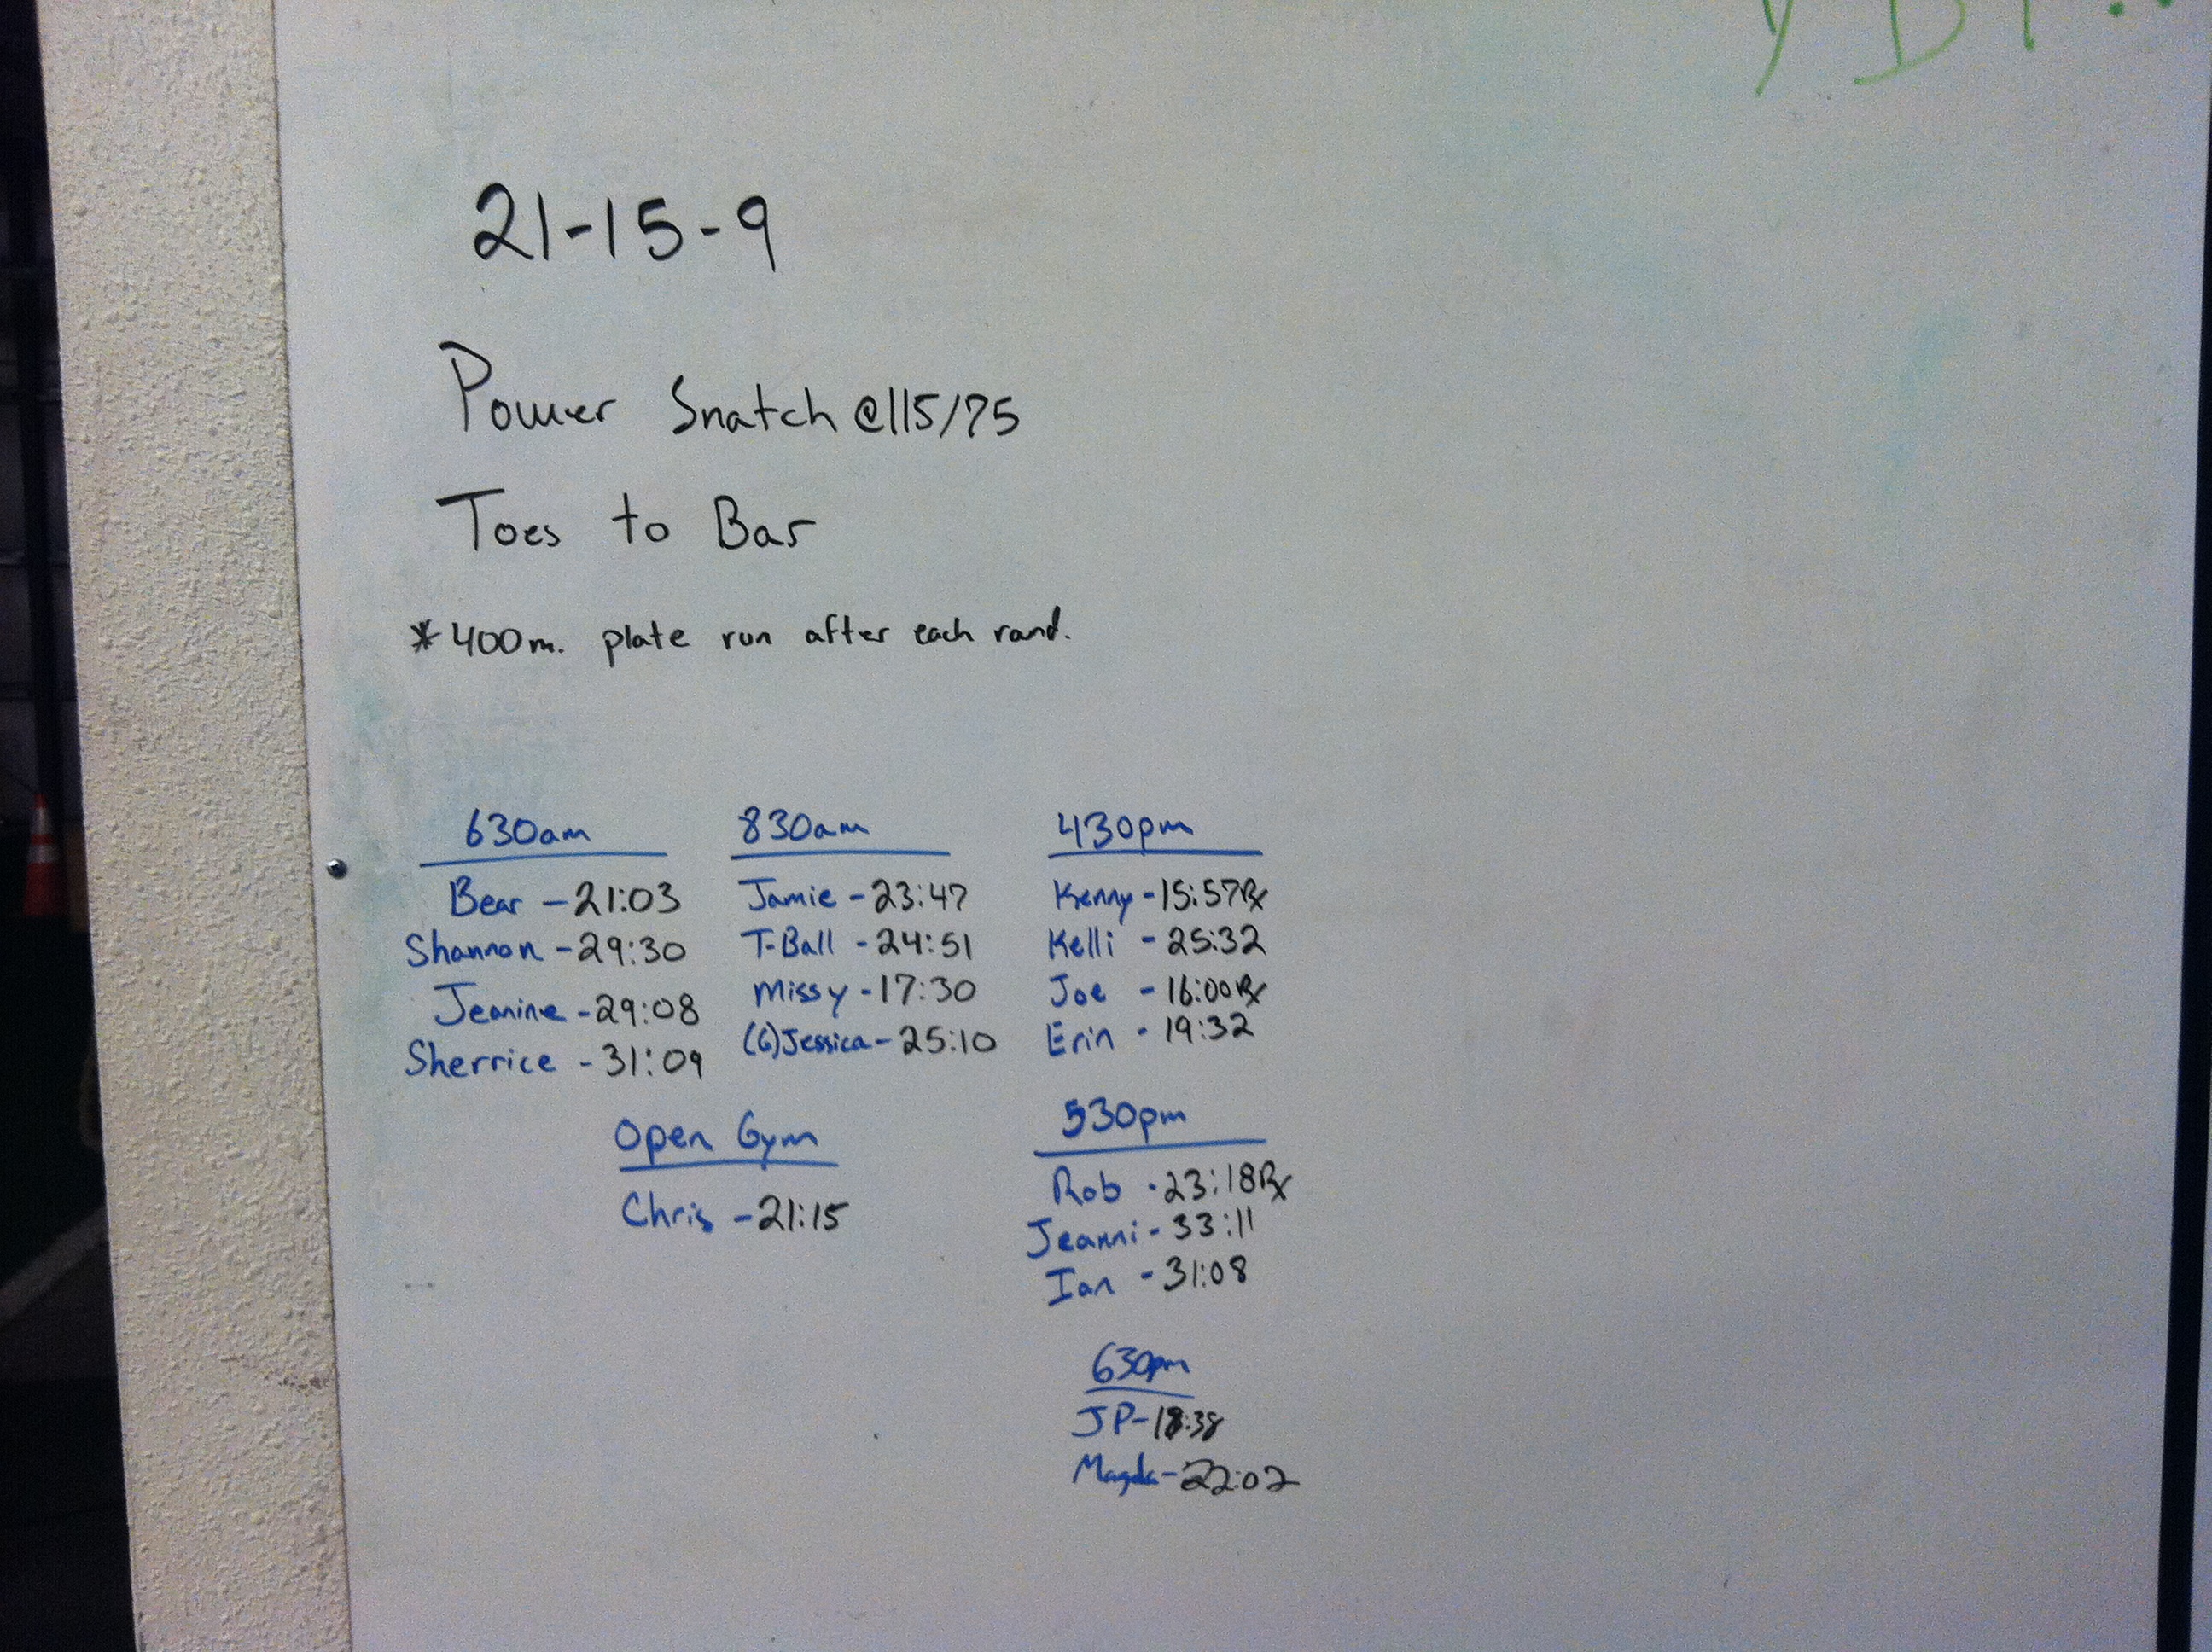 21-15-9
Power Snatch @115/75
Toes to Bar
*400m. plate run after each rond.
630am
Bear - 21:03
Shannon - 29:30
Jeanine - 29:08
Sherrice - 31:09
830am
Jamie - 23:47
T-Ball - 24:51
Missy - 17:30
(G)Jessica - 25:10
430pm
Kenny - 15:57 Rx
Kelli - 25:32
Joe - 16:00 Rx
Erin - 19:32
Open Gym
Chris - 21:15
530pm
Rob - 23:18 Rx
Jeanni - 33:11
Ian - 31:08
630pm
JP - 18:38
Magda - 22:02